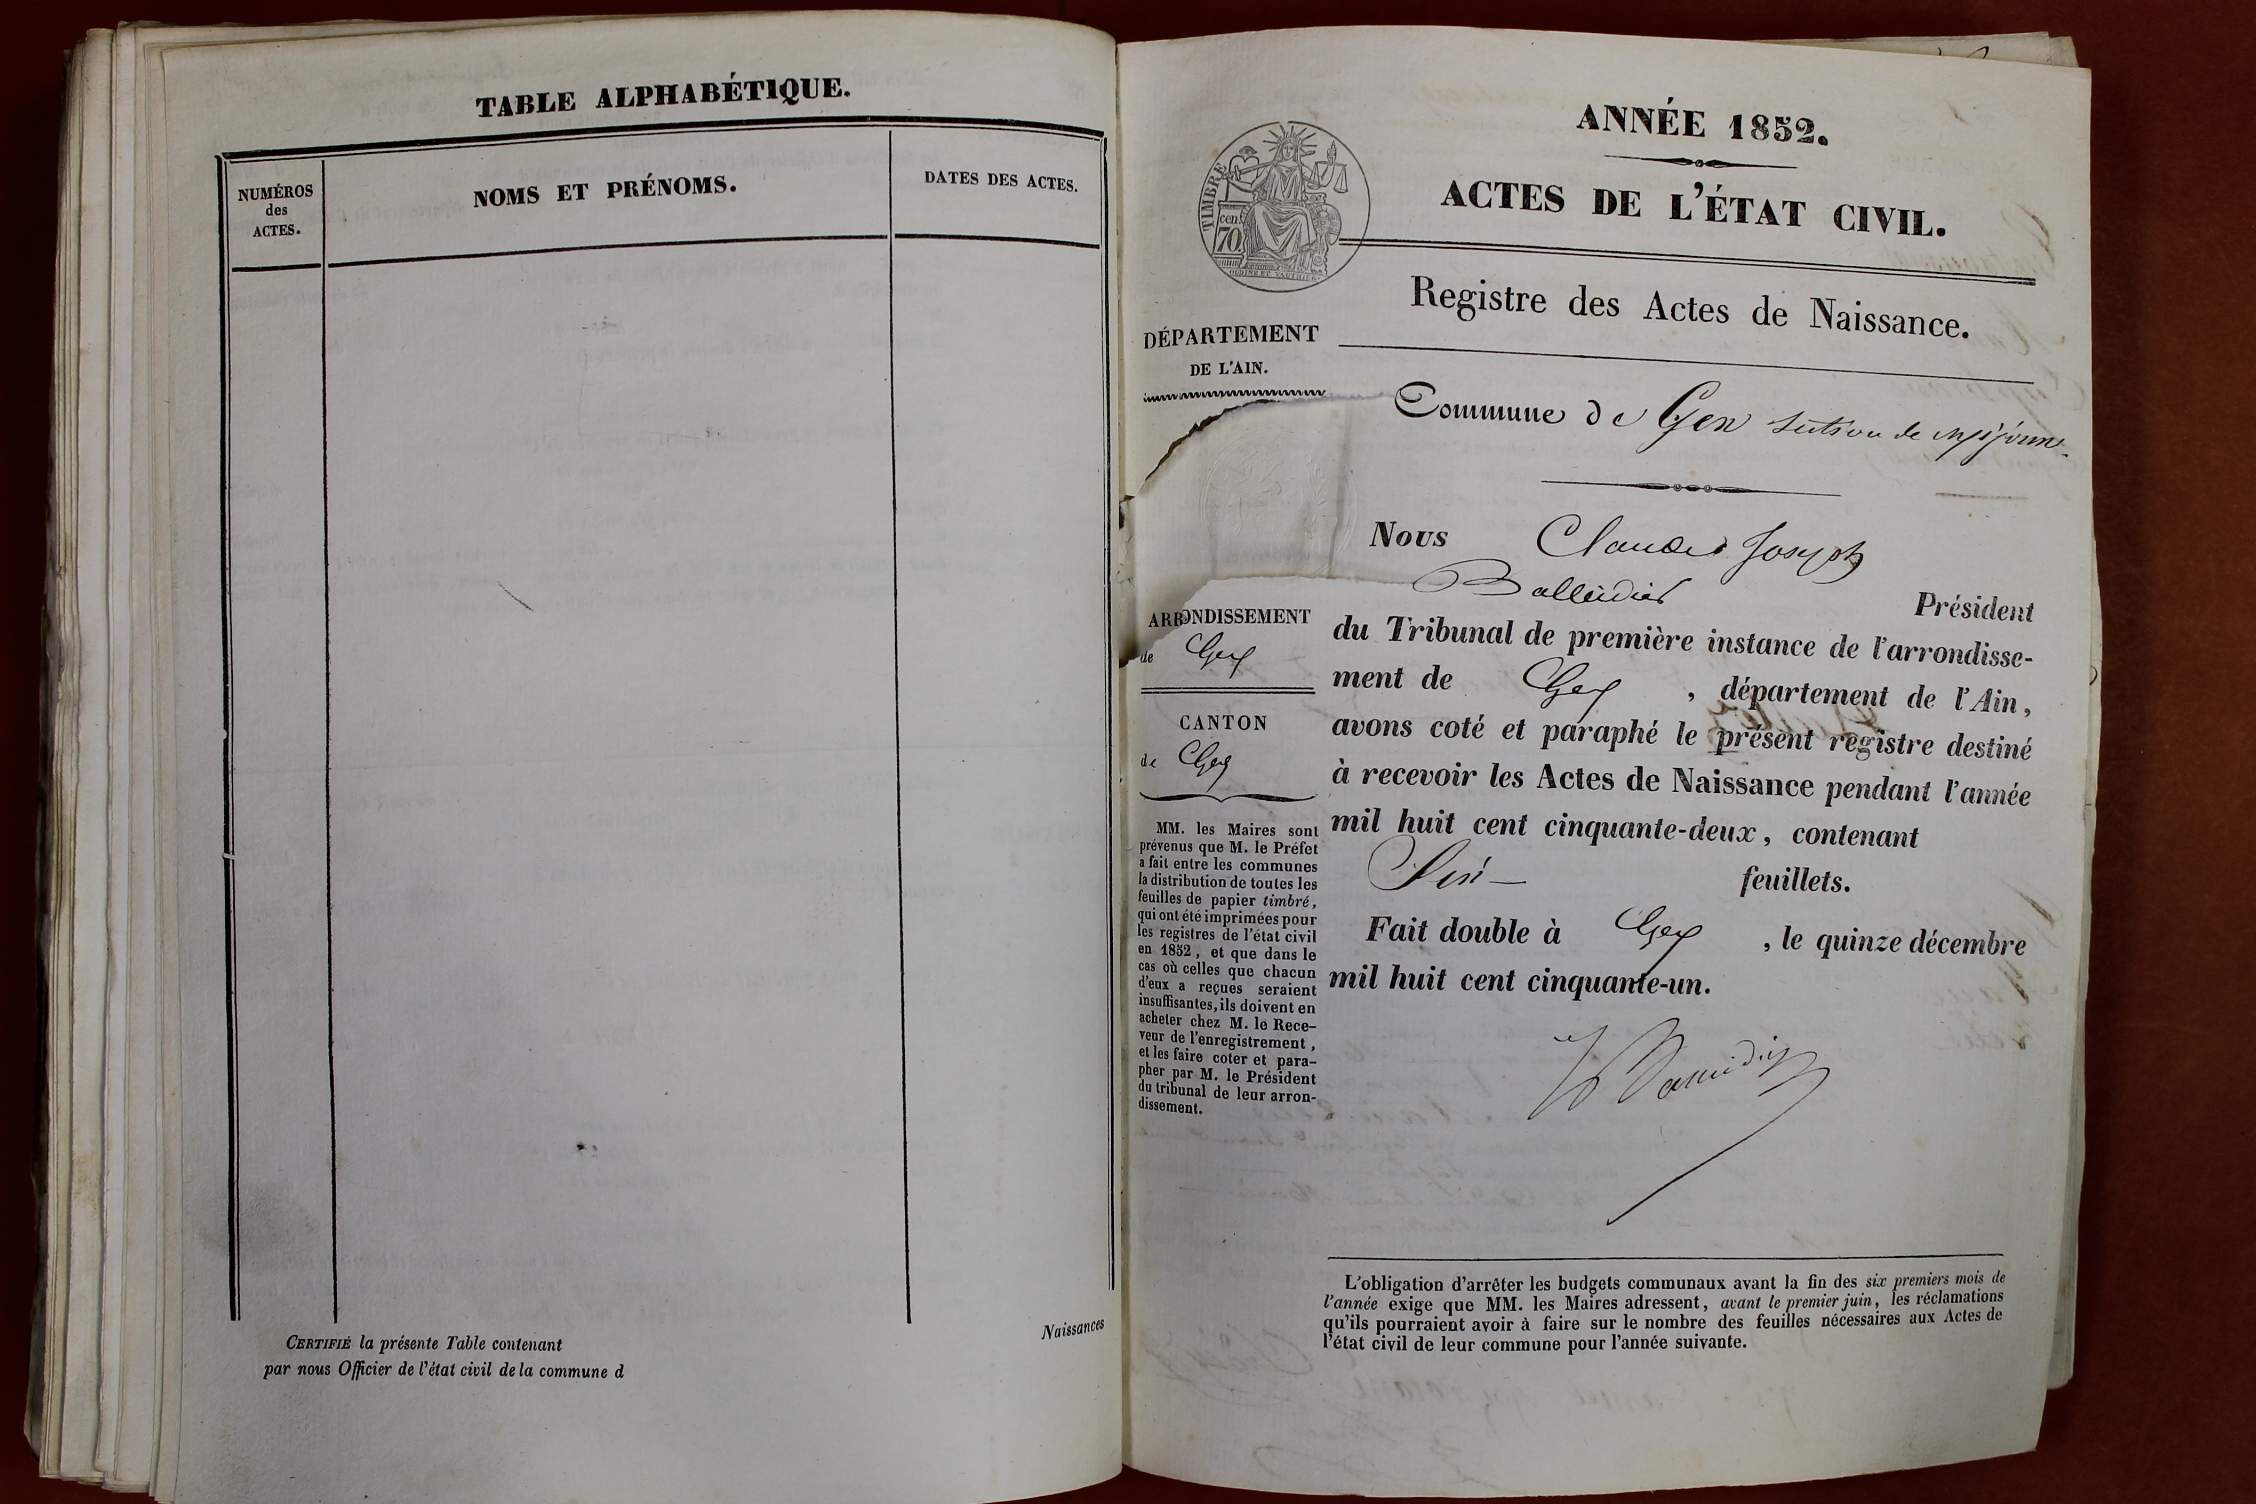 TABLE ALPHABÉTIQUE.
NUMÉROS
des
ACTES.
NOMS ET PRÉNOMS.
DATES DES ACTES.
CERTIFIÉ la présente Table contenant
par nous Officier de l'état civil de la commune d
Naissances
ANNÉE 1852.
ACTES DE L'ÉTAT CIVIL.
TIMBRE
70 cen.
Registre des Actes de Naissance.
DÉPARTEMENT
DE L'AIN.
Commune de Gex section de Mijoux
ARRONDISSEMENT
de Gex
CANTON
de Gex
MM. les Maires sont
prévenus que M. le Préfet
a fait entre les communes
la distribution de toutes les
feuilles de papier timbré,
qui ont été imprimées pour
les registres de l'état civil
en 1852, et que dans le
cas où celles que chacun
d'eux a reçues seraient
insuffisantes, ils doivent en
acheter chez M. le Rece-
veur de l'enregistrement,
et les faire coter et para-
pher par M. le Président
du tribunal de leur arron-
dissement.
Nous Claude Joseph
Balleidier Président
du Tribunal de première instance de l'arrondisse-
ment de Gex, département de l'Ain,
avons coté et paraphé le présent registre destiné
à recevoir les Actes de Naissance pendant l'année
mil huit cent cinquante-deux, contenant
Six feuillets.
Fait double à Gex, le quinze décembre
mil huit cent cinquante-un.
L'obligation d'arrêter les budgets communaux avant la fin des six premiers mois de
l'année exige que MM. les Maires adressent, avant le premier juin, les réclamations
qu'ils pourraient avoir à faire sur le nombre des feuilles nécessaires aux Actes de
l'état civil de leur commune pour l'année suivante.